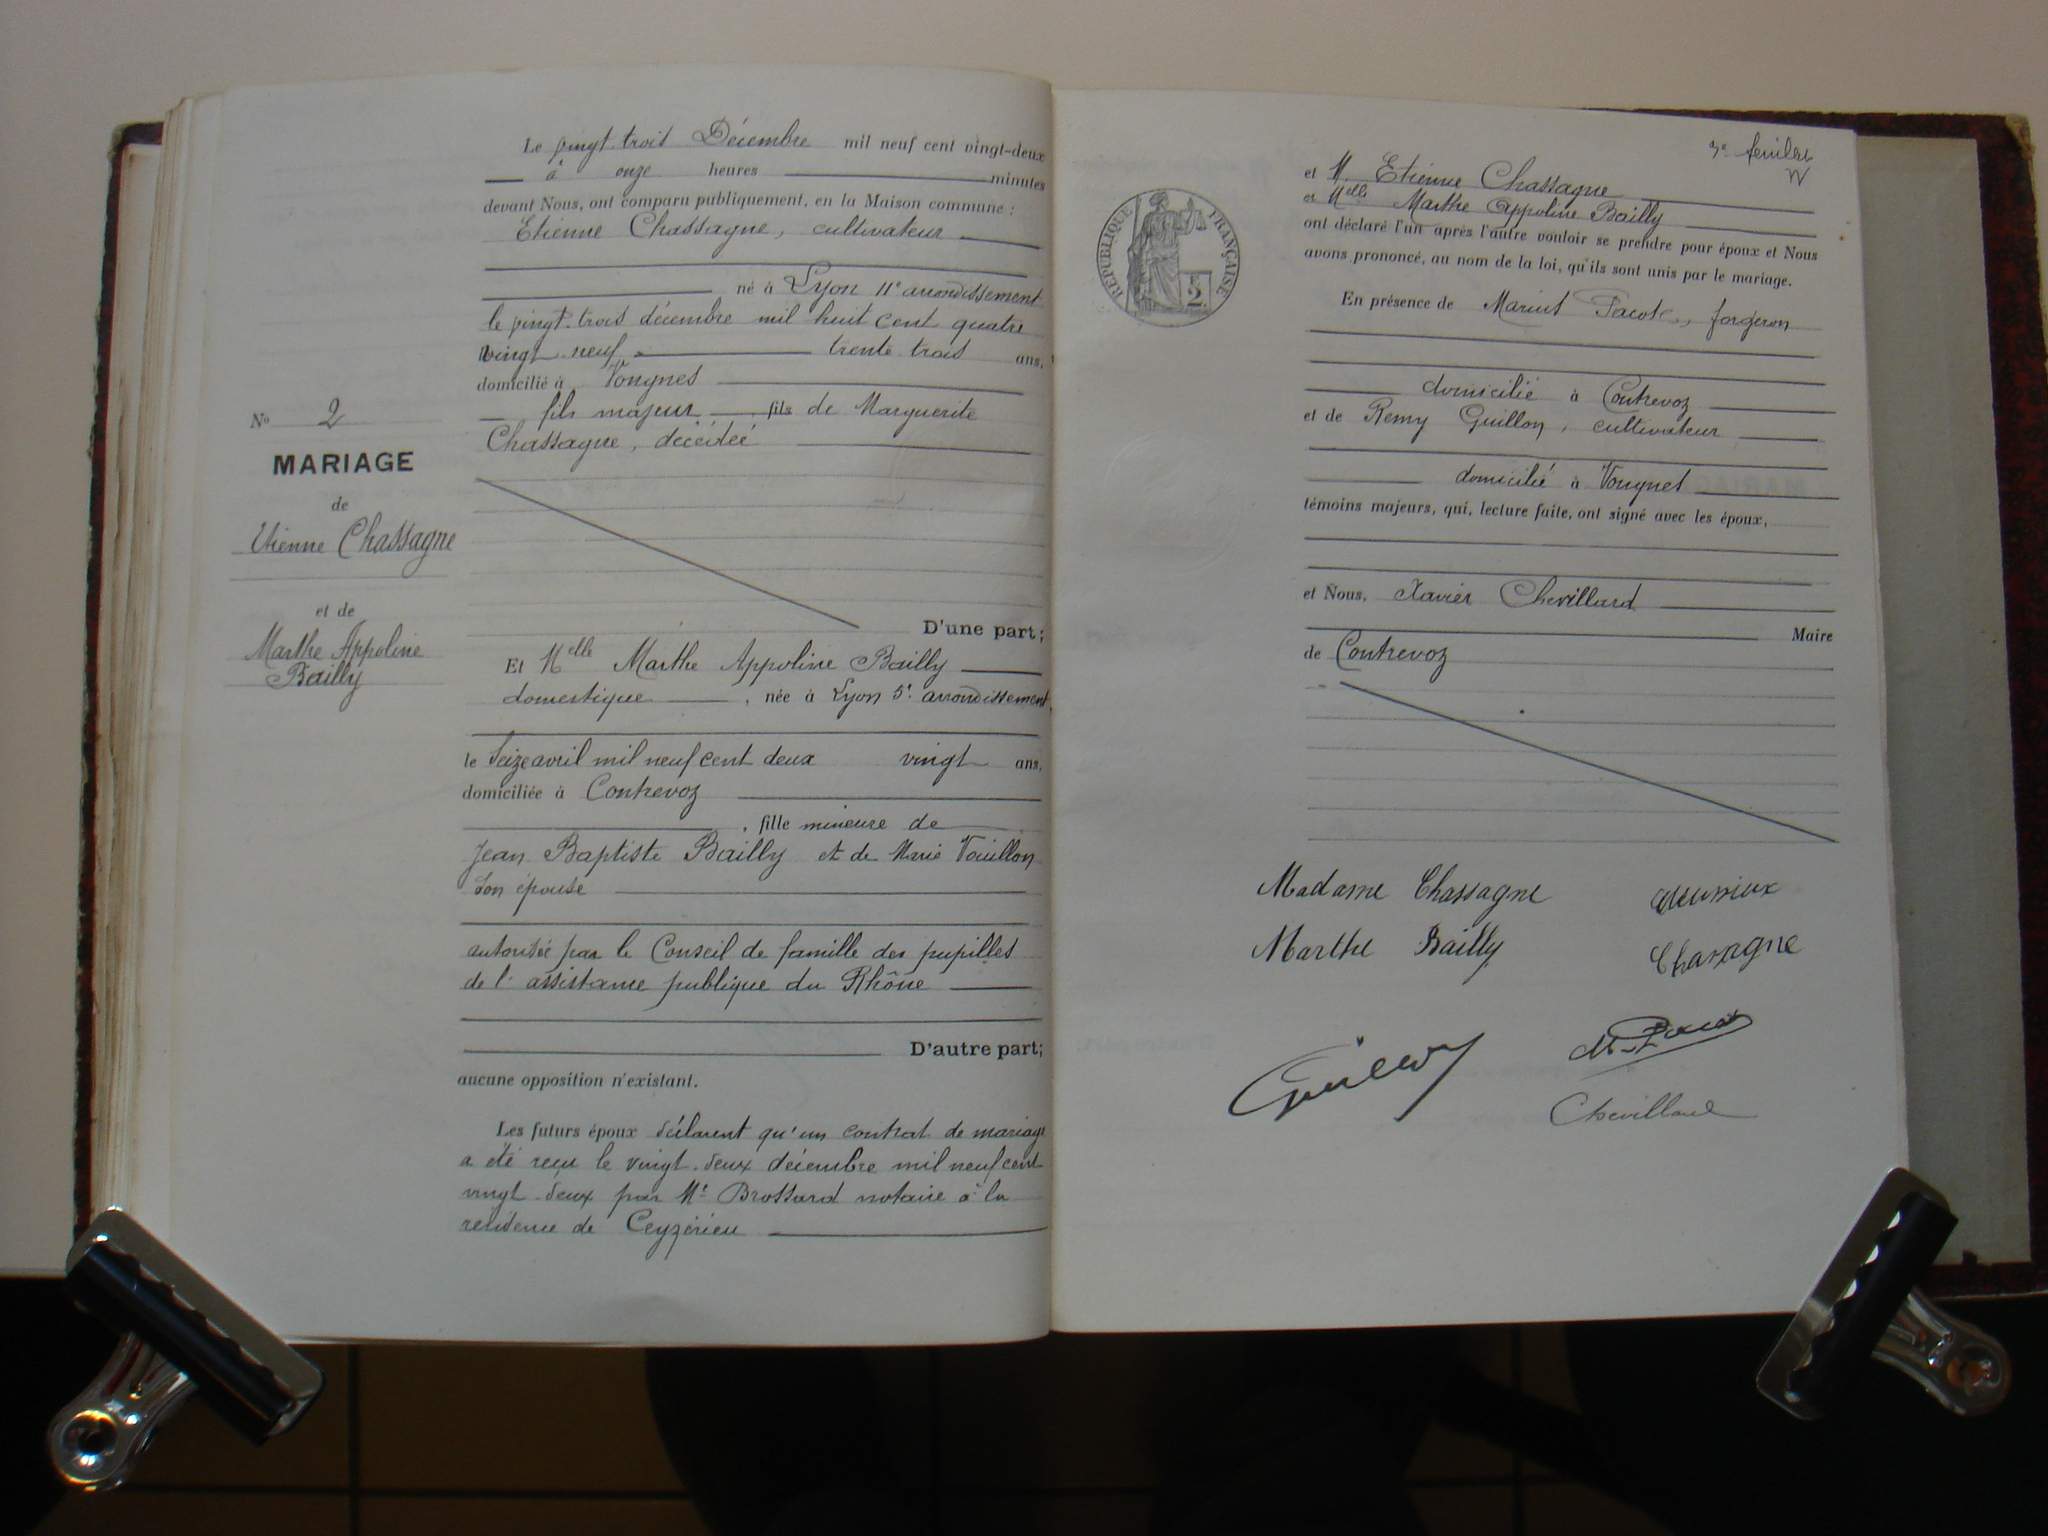 Le vingt-trois Décembre mil neuf cent vingt-deux
à onze heures minutes
devant Nous, ont comparu publiquement, en la Maison commune :
Etienne Chassagne, cultivateur
né à Lyon IIe arrondissement
le vingt-trois décembre mil huit cent quatre
vingt-neuf trente trois ans,
domicilié à Vongnes
fils majeur fils de Marguerite
Chassagne, décédée
No 2
MARIAGE
de
Etienne Chassagne
et de
Marthe Appoline
Bailly
D'une part;
Et Melle Marthe Appoline Bailly
domestique, née à Lyon 5e arrondissement,
le Seize avril mil neuf cent deux vingt ans,
domiciliée à Contrevoz
, fille mineure de
Jean Baptiste Bailly et de Marie Vouillon
son épouse
autorisée par le Conseil de famille des pupilles
de l'assistance publique du Rhône
D'autre part;
aucune opposition n'existant.
Les futurs époux déclarent qu'un contrat de mariage
a été reçu le vingt-deux décembre mil neuf cent
vingt-deux par Me Brossard notaire à la
résidence de Ceyzérieu
3e feuillet
RÉPUBLIQUE FRANÇAISE
2
et M. Etienne Chassagne
et Melle Marthe Appoline Bailly
ont déclaré l'un après l'autre vouloir se prendre pour époux et Nous
avons prononcé, au nom de la loi, qu'ils sont unis par le mariage.
En présence de Marius Pacot, forgeron
domicilié à Contrevoz
et de Remy Guillon, cultivateur
domicilié à Vongnes
témoins majeurs, qui, lecture faite, ont signé avec les époux,
et Nous, Xavier Chevillard
Maire
de Contrevoz
Madame Chassagne
Marthe Bailly
Chassagne
Guillon
M. Pacot
Chevillard